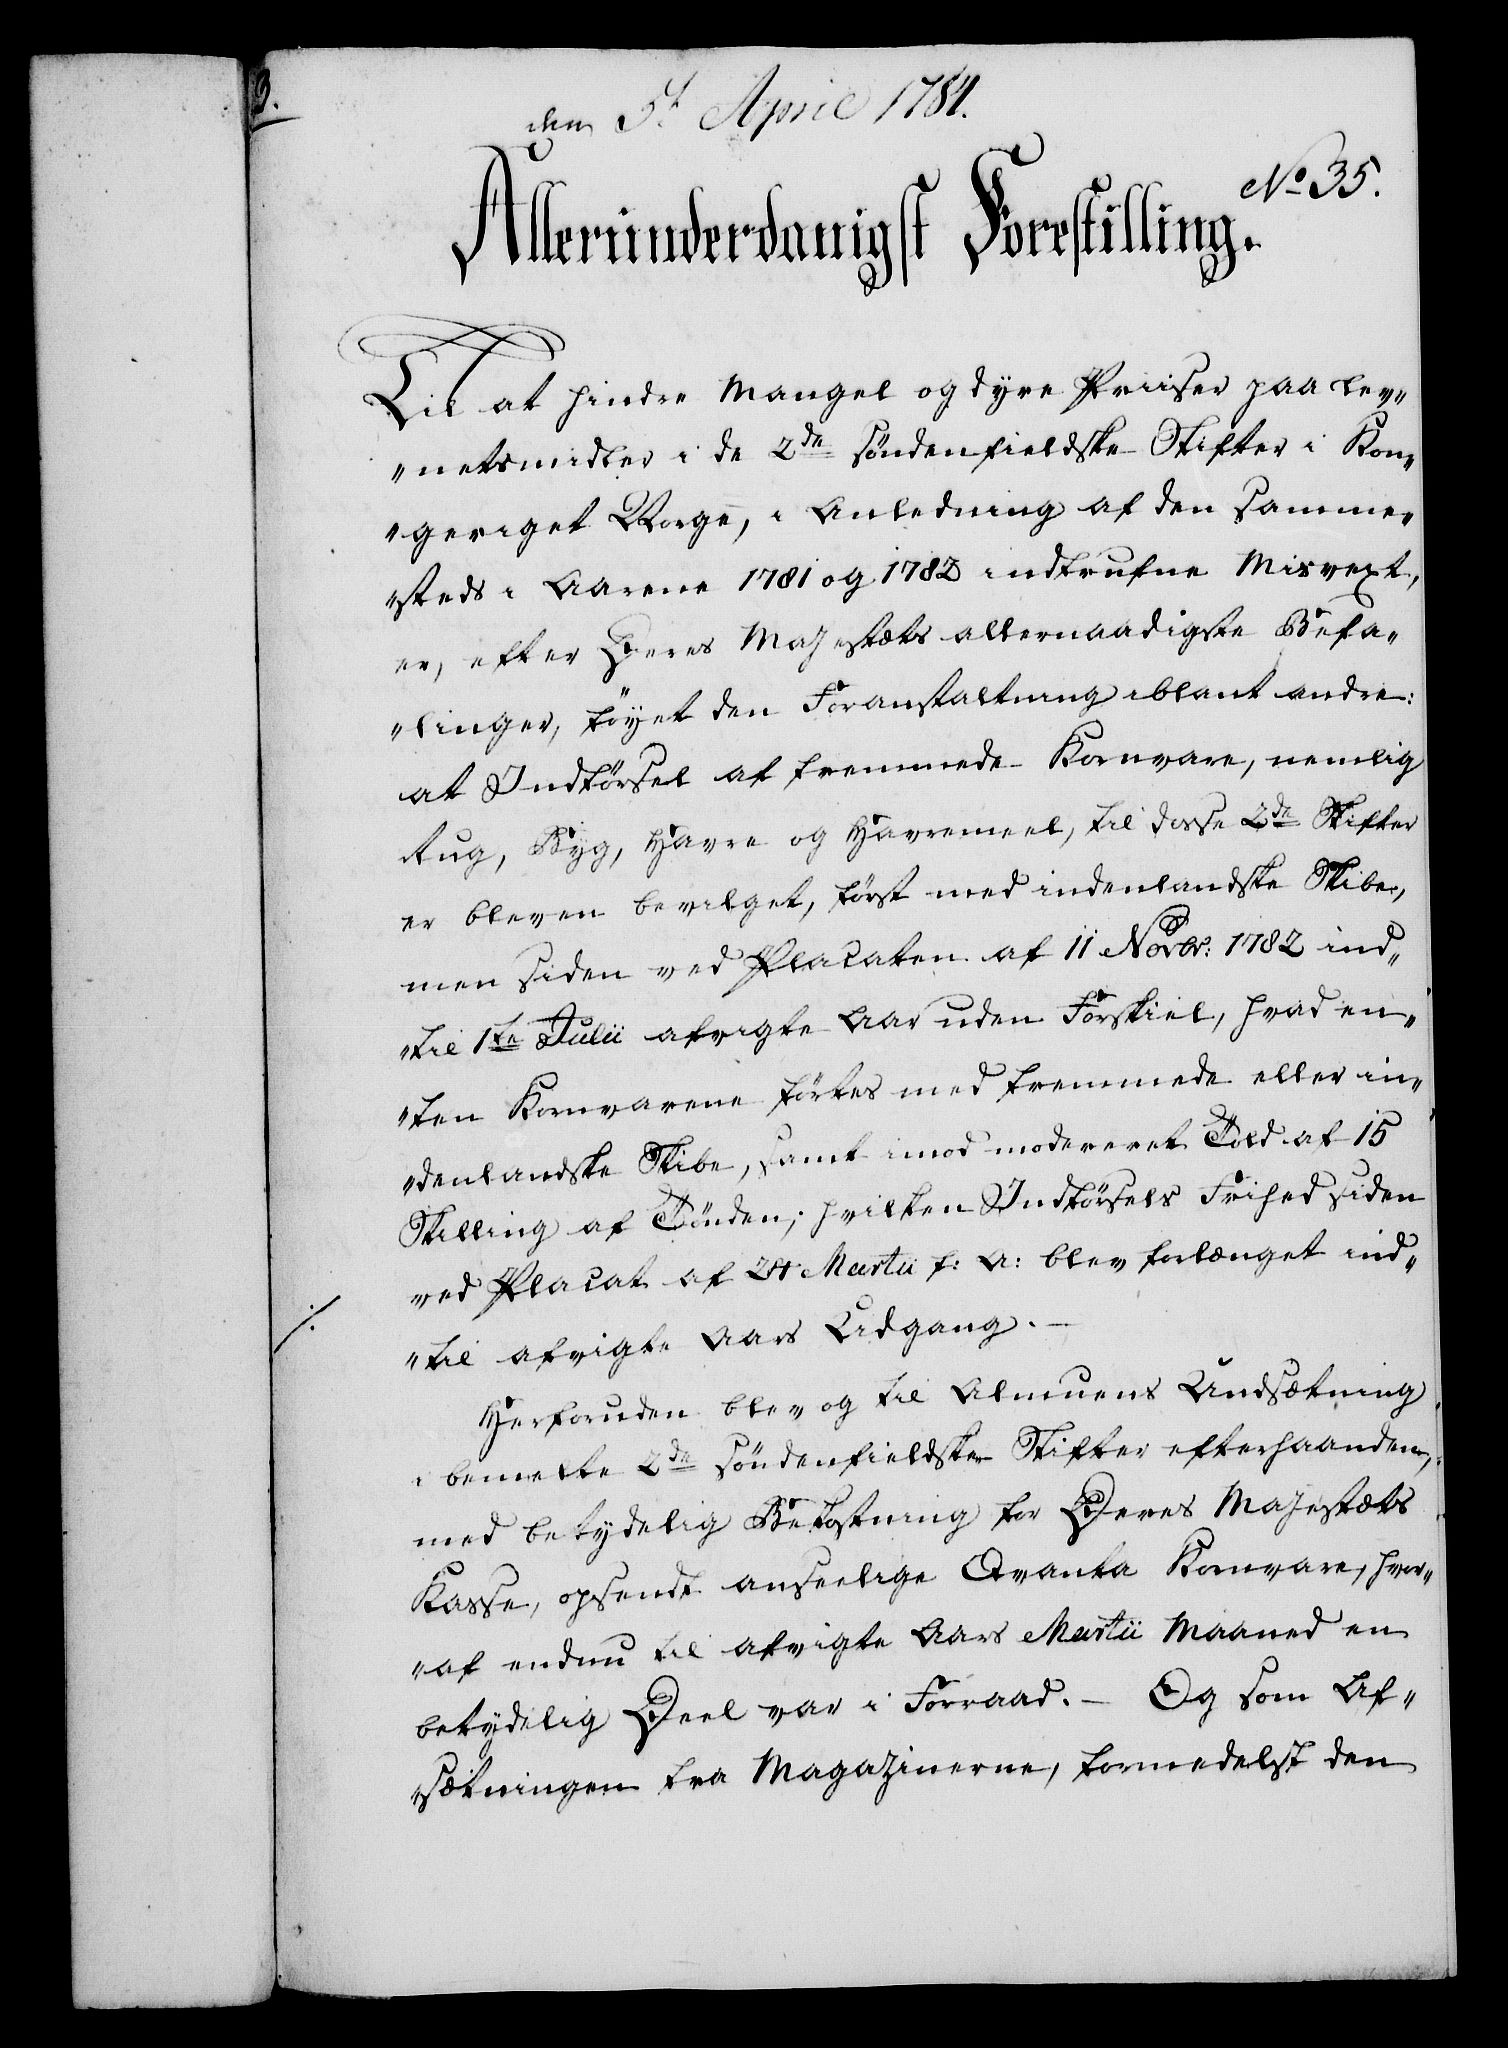 den 5t April 1784.
No 35.
Allerunderdanigst Forestilling.
Til at hindre Mangel og dyre Priiser paa lev„
„netsmidler i de 2de söndenfieldske Stifter i Kon„
„geriget Norge, i Anledning af den samme„
„steds i Aarene 1781 og 1782 indtrufne Misvext,
er, efter Deres Majestæts allernaadigste Befa„
„linger, föyet den Foranstaltning iblant andre:
at Indförsel af fremmede Kornvare, nemlig
Rug, Byg, Havre og Havremeel, til disse 2de Stifter
er bleven bevilget, först med indenlandske Skibe,
men siden ved Placaten af 11 Novbr: 1782 ind„
„til 1te Julii afvigte Aar uden Forskiel, hvad en„
„ten Kornvarene förtes med fremmede eller in„
„denlandske Skibe, samt imod modereret Told af 15
Skilling af Tönden; hvilken Indförsels Frihed siden
ved Placat af 24 Martii f: A: blev forlænget ind„
„til afvigte Aars Udgang. —
Herforuden blev og til Almuens Undsætning
i bemelte 2de söndenfieldske Stifter efterhaanden,
med betydelig Bekostning for Deres Majestæts
Kasse, opsendt anseelige Qvanta Kornvare, hvor„
„af endnu til afvigte Aars Martii Maaned en
betydelig Deel var i Forraad. — Og som Af„
„sætningen fra Magazinerne, formedelst den